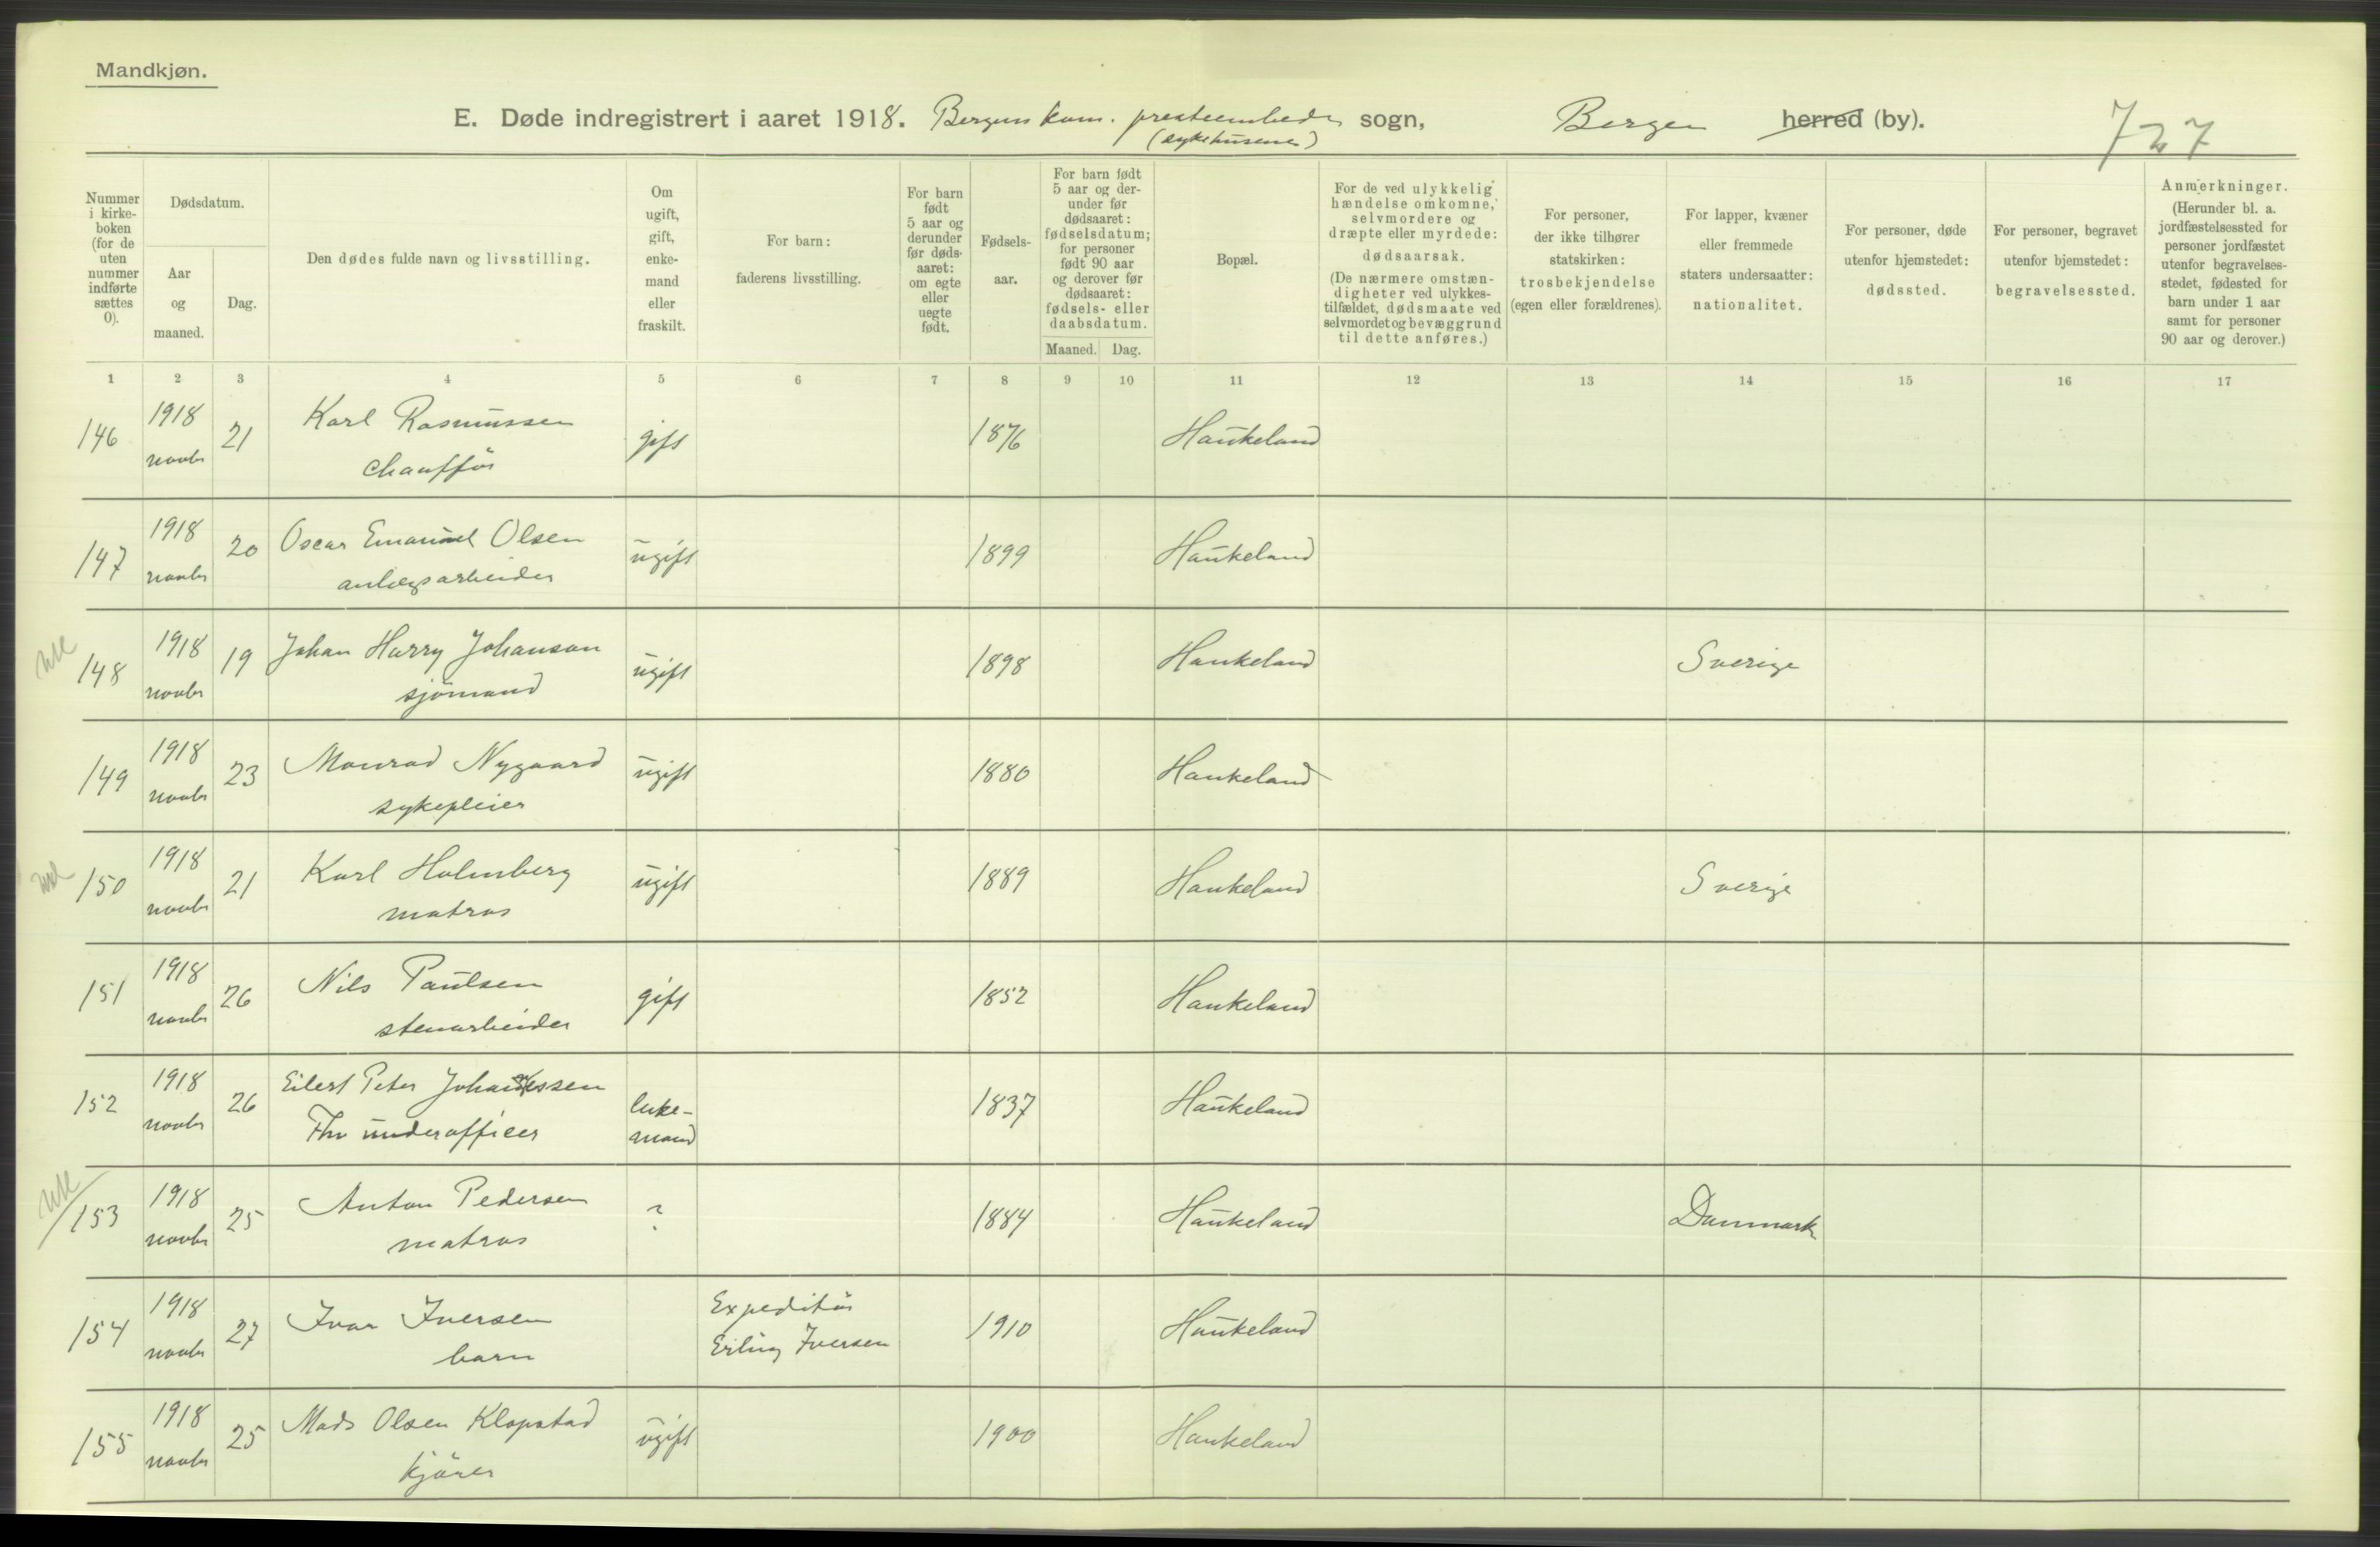 Mandkjøn.
E. Døde indregistrert i aaret 1918. Bergens kom. presteembede sogn, Bergen herred (by). 727
(sykehusene)
Nummer i kirke-boken (for de uten nummer indførte sættes 0).
Dødsdatum.
Aar og maaned.
Dag.
Den dødes fulde navn og livsstilling.
Om ugift, gift, enke-mand eller fraskilt.
For barn: faderens livsstilling.
For barn født 5 aar og derunder før døds-aaret: om egte eller uegte født.
Fødsels-aar.
For barn født 5 aar og der-under før dødsaaret: fødselsdatum; for personer født 90 aar og derover før dødsaaret: fødsels- eller daabsdatum.
Maaned. Dag.
Bopæl.
For de ved ulykkelig hændelse omkomne, selvmordere og dræpte eller myrdede: dødsaarsak.
(De nærmere omstæn-digheter ved ulykkes-tilfældet, dødsmaate ved selvmordet og bevæggrund til dette anføres.)
For personer, der ikke tilhører statskirken: trosbekjendelse (egen eller forældrenes).
For lapper, kvæner eller fremmede staters undersaatter: nationalitet.
For personer, døde utenfor hjemstedet: dødssted.
For personer, begravet utenfor hjemstedet: begravelsessted.
Anmerkninger.
(Herunder bl. a. jordfæstelsessted for personer jordfæstet utenfor begravelses-stedet, fødested for barn under 1 aar samt for personer 90 aar og derover.)
1 2 3 4 5 6 7 8 9 10 11 12 13 14 15 16 17
146 1918 novbr 21 Karl Rasmussen chaufför gift 1876 Haukeland
147 1918 novbr 20 Oscar Emanuel Olsen anlægsarbeider ugift 1899 Haukeland
148 1918 novbr 19 Johan Harry Johanson sjömand ugift 1898 Haukeland Sverige
149 1918 novbr 23 Monrad Nygaard sykepleier ugift 1880 Haukeland
150 1918 novbr 21 Karl Holmberg matros ugift 1889 Haukeland Sverige
151 1918 novbr 26 Nils Paulsen stenarbeider gift 1852 Haukeland
152 1918 novbr 26 Eilert Peter Johannessen underofficer enke-mand 1837 Haukeland
153 1918 novbr 25 Anton Pedersen matros ? 1884 Haukeland Danmark
154 1918 novbr 27 Ivar Iversen barn Expeditör Erling Iversen 1910 Haukeland
155 1918 novbr 25 Mads Olsen Klopstad kjörer ugift 1900 Haukeland